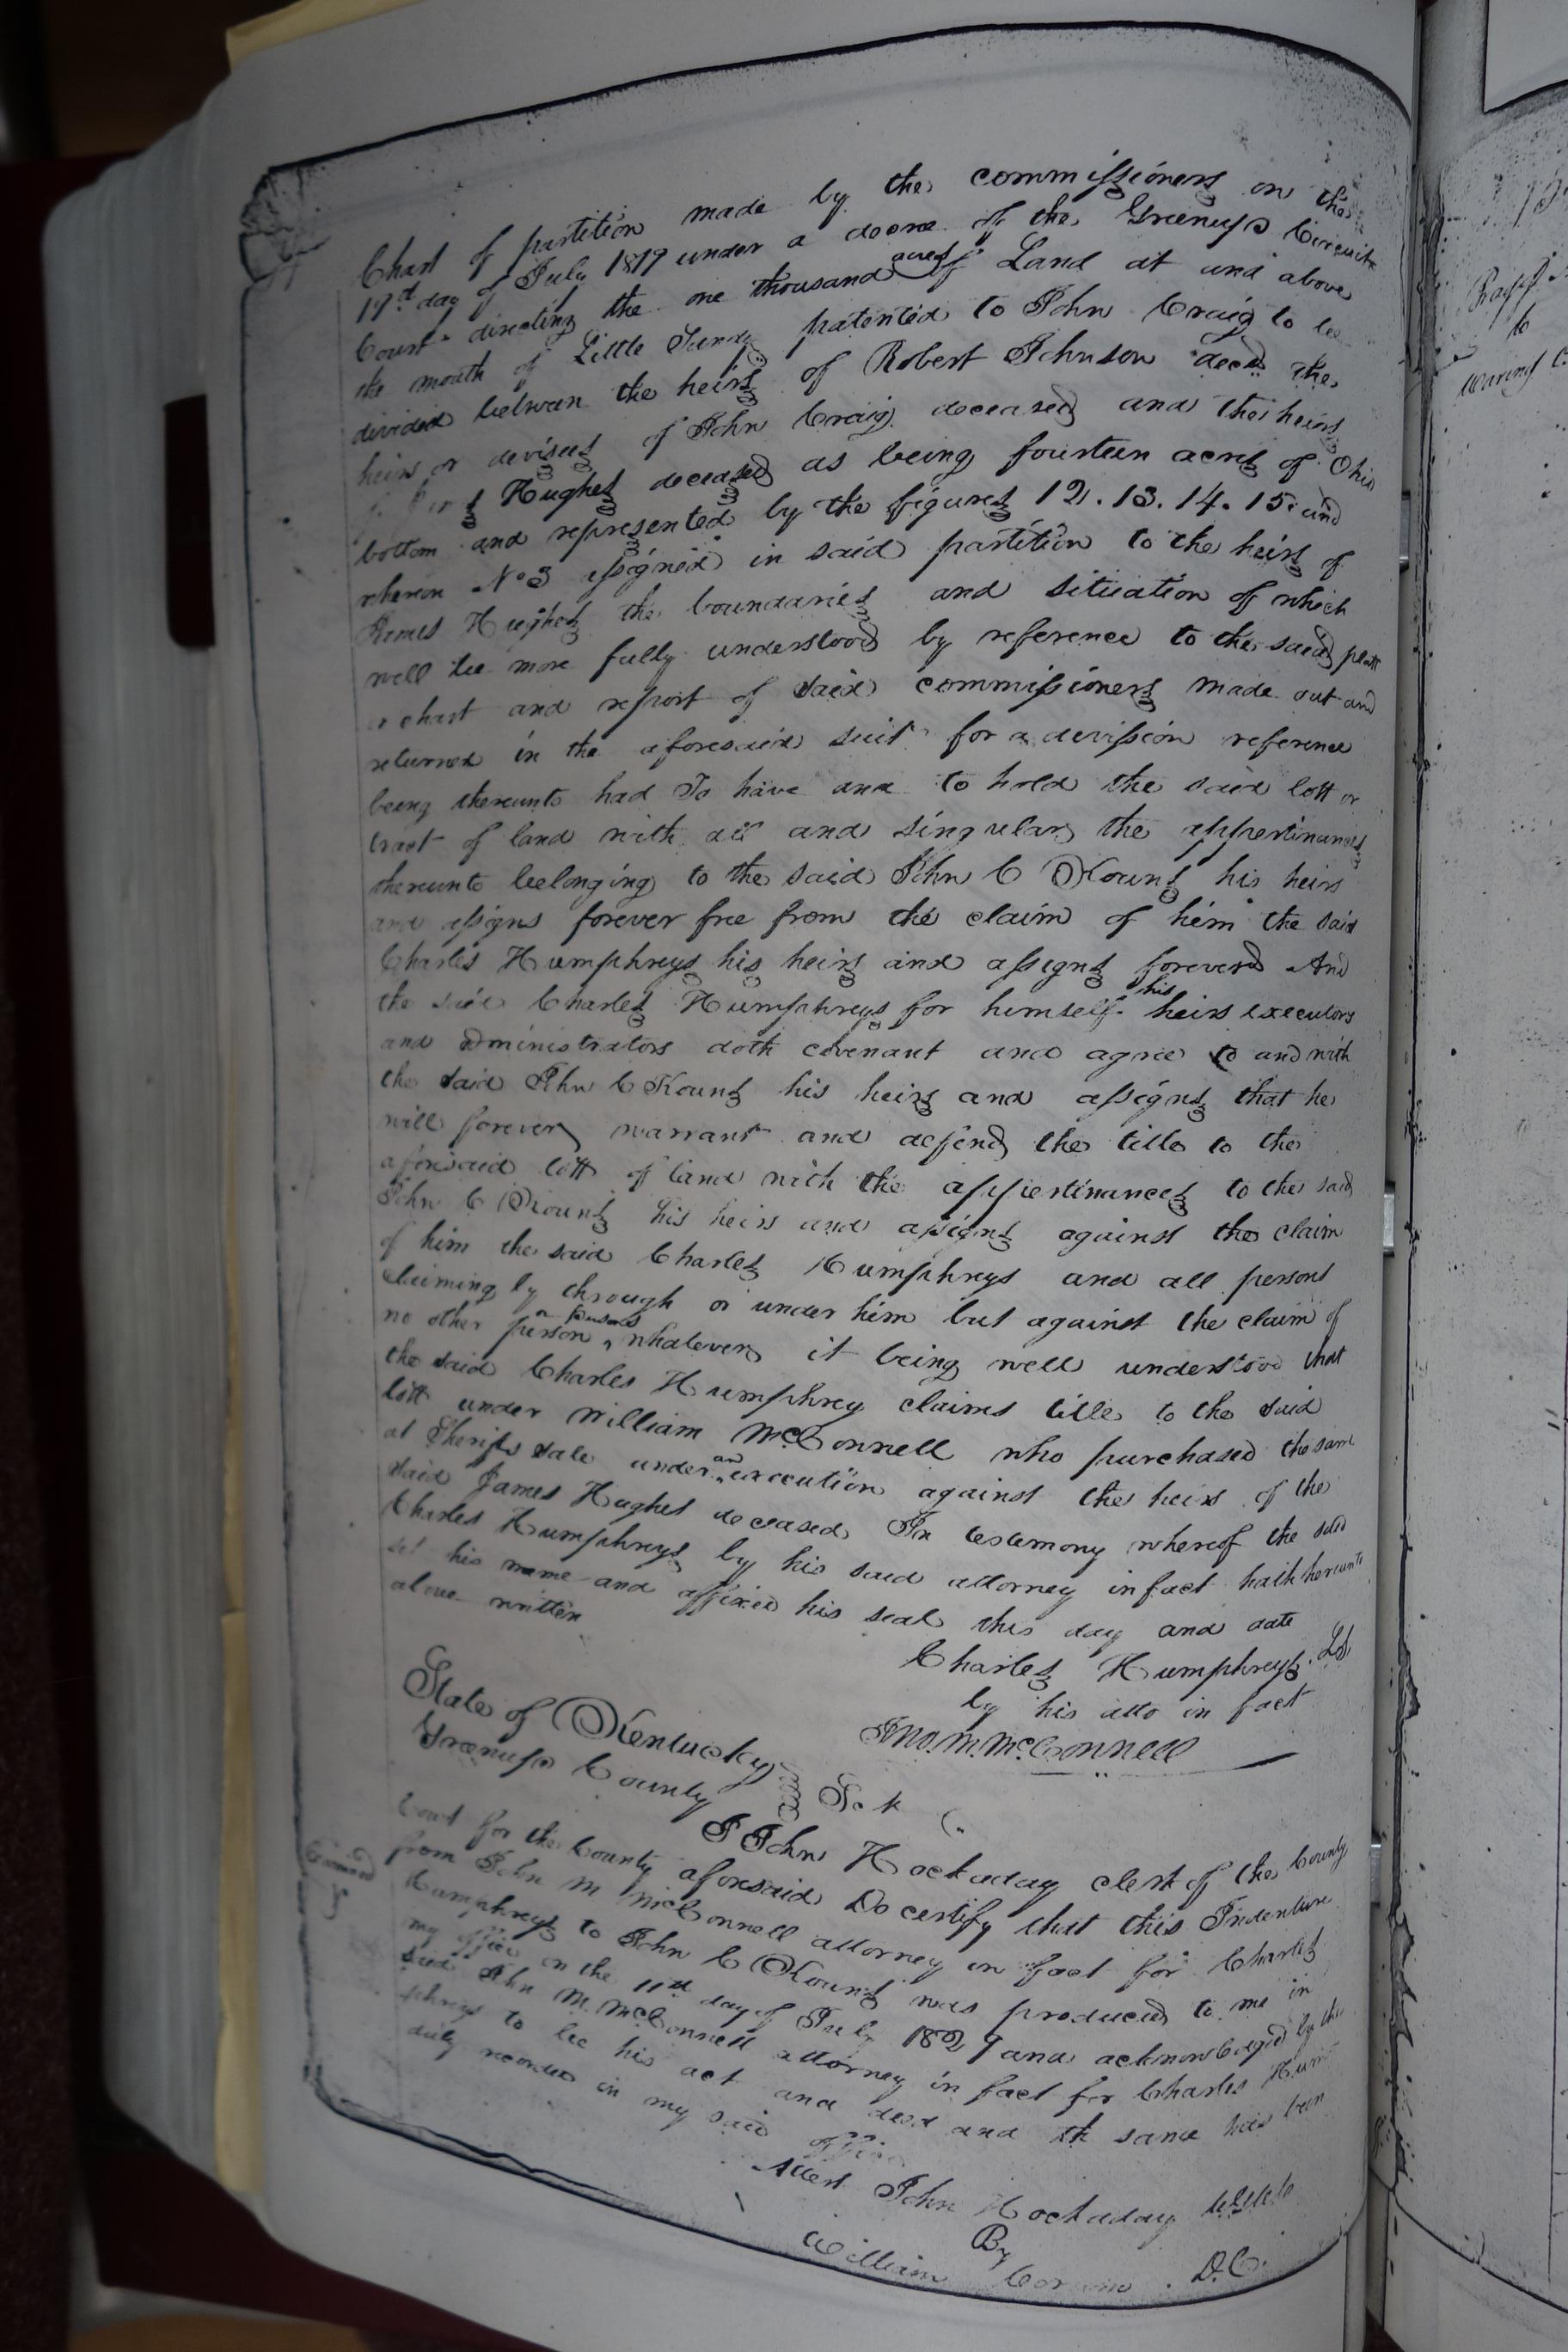 Chart of partition made by the commissioners on the
19th day of July 1819 under a decree of the Greenup Circuit
Court directing the one thousand acres of Land at and above
the mouth of Little Sandy patented to John Craig to be
divided between the heirs of Robert Johnson decd the
heirs or devisees of John Craig deceased and the heirs
of James Hughes deceased as being fourteen acres of Ohio
bottom and represented by the figures 12. 13. 14. 15 and
whereon No 3 assigned in said partition to the heirs of
James Hughes the boundaries and situation of which
will be more fully understood by reference to the said platt
or chart and report of said commissioners made out and
returned in the aforesaid suit for a devission reference
being thereunto had To have and to hold the said lott or
tract of land with all and singular the appertinances
thereunto belonging to the said John C Kouns his heirs
and assigns forever free from the claim of him the said
Charles Humphreys his heirs and assigns forever And
the said Charles Humphreys for himself his heirs executors
and administrators doth covenant and agree to and with
the said John C Kouns his heirs and assigns that he
will forever warrant and defend the title to the
aforesaid lott of land with the appertinances to the said
John C Kouns his heirs and assigns against the claim
of him the said Charles Humphreys and all persons
claiming by through or under him but against the claim of
no other person or persons whatever it being well understood that
the said Charles Humphrey claims title to the said
lott under William McConnell who purchased the same
at Sheriffs sale under an execution against the heirs of the
said James Hughes deceased In testemony whereof the said
Charles Humphreys by his said attorney in fact hath hereunto
set his name and affixed his seal this day and date
above written
Charles Humphreys. LS
by his atto in fact
Jno. M. McConnell
State of Kentucky
Greenup County Sct
I John Hockaday clerk of the County
Court for the County aforesaid Do certify that this Indenture
from John M McConnell attorney in fact for Charles
Humphreys to John C Kouns was produced to me in
my office on the 11th day of July 1829 and acknowledged by the
said John M. McConnell attorney in fact for Charles Hum
phreys to be his act and deed and the same has been
duly recorded in my said office
Attest John Hockaday
By
William Corum. D.C.
Examined